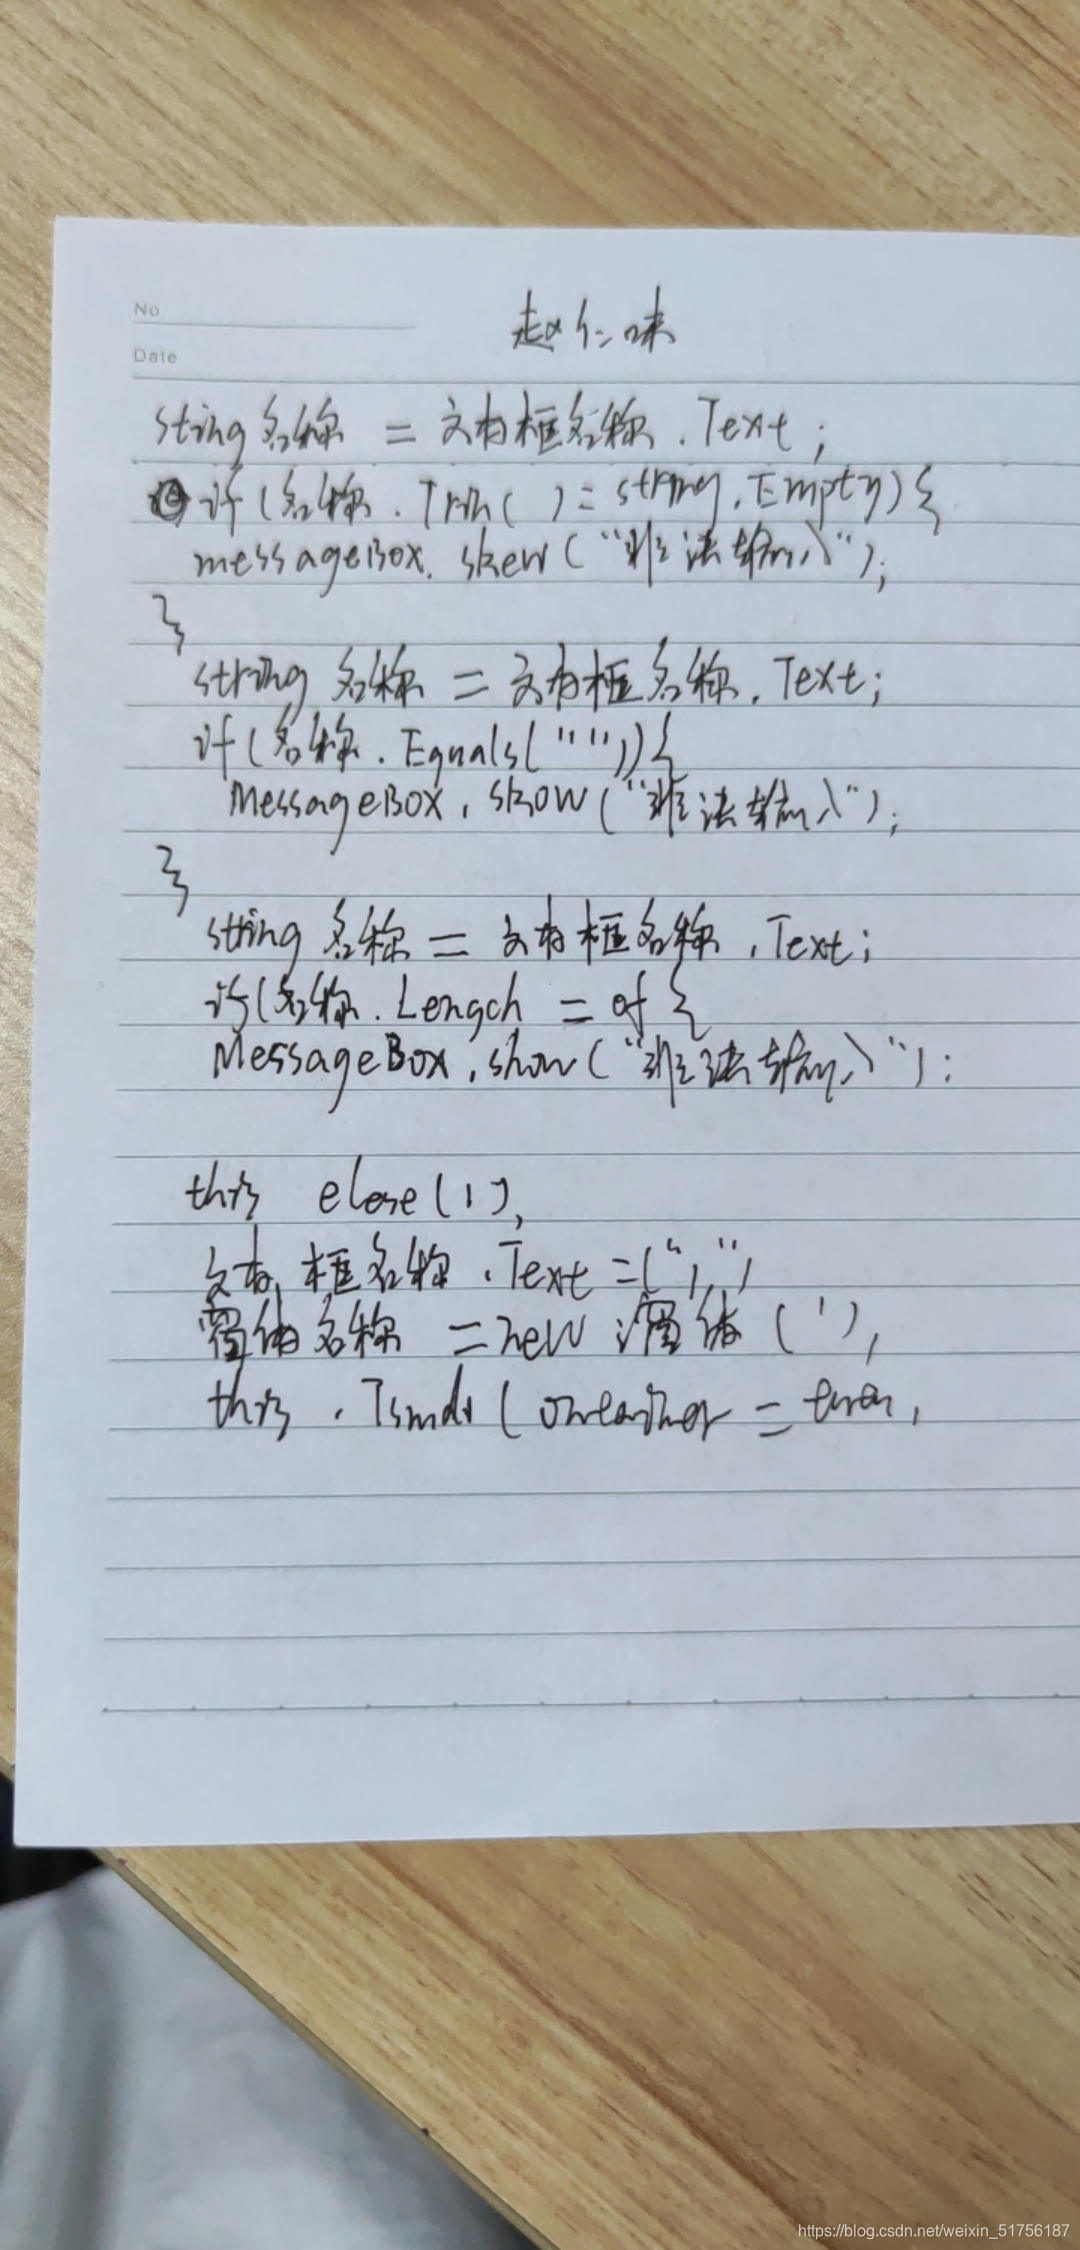 No.
赵仁味
Date
string 名称 = 文本框名称.Text;
if(名称.Trim( ) = string.Empty){
messageBox.show("非法输入");
}
string 名称 = 文本框名称.Text;
if(名称.Equals("")){
MessageBox.show("非法输入");
}
string 名称 = 文本框名称.Text;
if(名称.Length = of {
MessageBox.show("非法输入");
this close();
文本框名称.Text =
窗体名称 = new 窗体();
this.Ismdi(ontainer =
https://blog.csdn.net/weixin_51756187